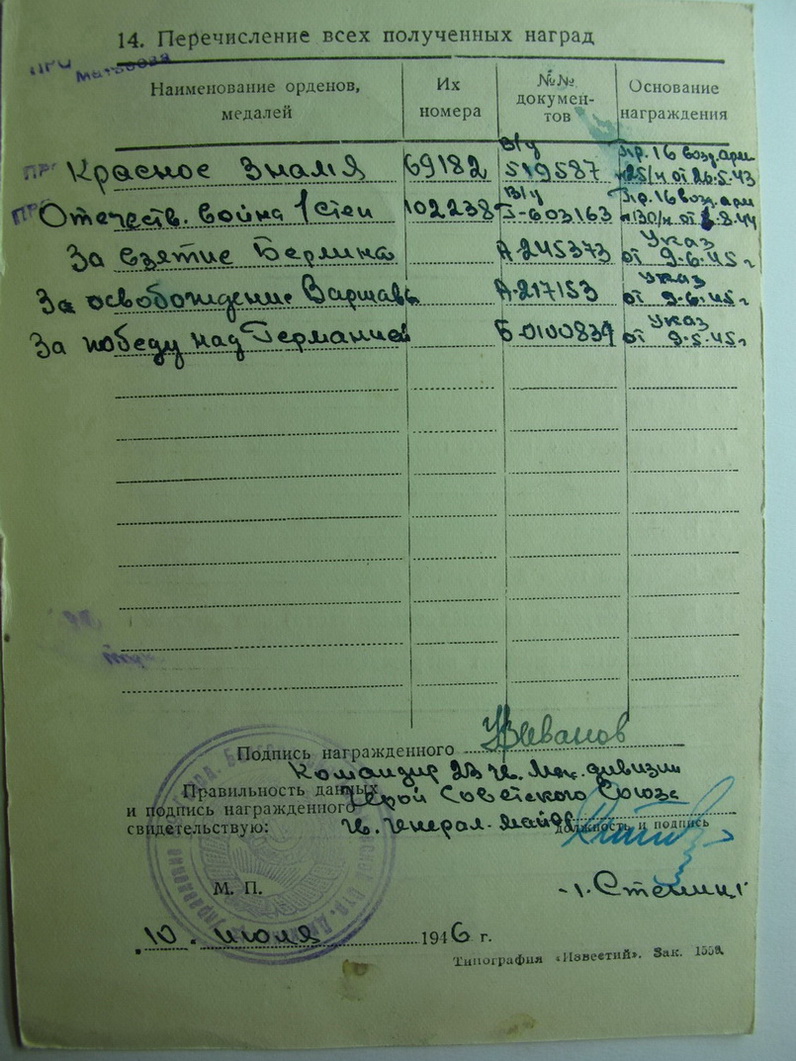 14. Перечисление всех полученных наград
Наименование орденов, медалей
Их номера
№№ документов
Основание награждения
Красное Знамя 69182 в/у 519587 Пр. 16 возд. арм №25/н от 26.5.43
Отечеств. война 1 степ 102238 в/у Б-603163 Пр. 16 возд. арм №130/н от 8.44
За взятие Берлина А-245373 Указ от 9.6.45 г
За освобождение Варшавы А-217153 Указ от 9.6.45 г
За победу над Германией Б-0100837 Указ от 9.5.45 г
Подпись награжденного Иванов
Командир гв. мех. дивизии
Правильность данных и подпись награжденного свидетельствую:
Герой Советского Союза
гв. генерал-майор
должность и подпись
М. П.
10 июля 1946 г.
Типография «Известий». Зак. 1559